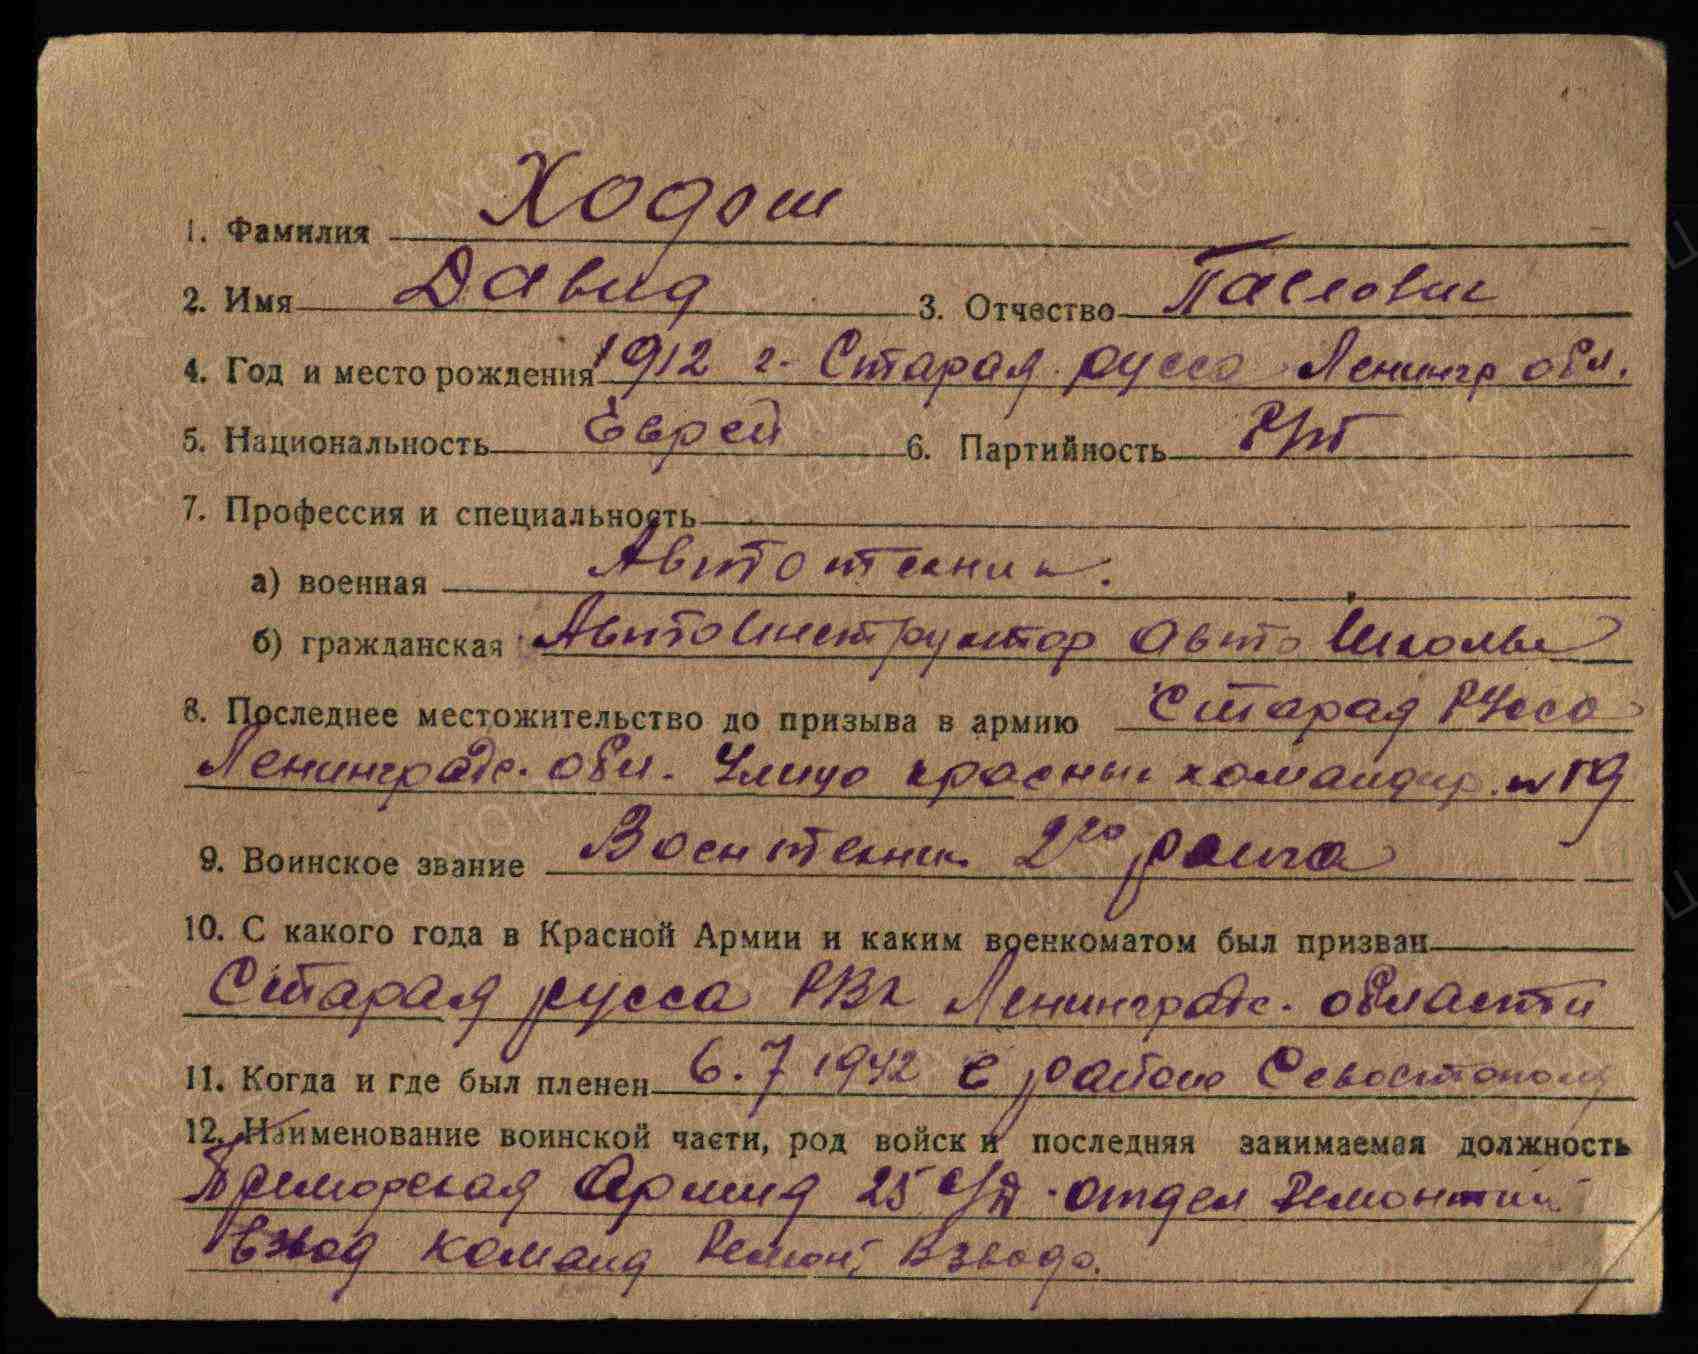 1. Фамилия Ходош
2. Имя Давид 3. Отчество Павлович
4. Год и место рождения 1912 г. Старая русса Ленингр обл.
5. Национальность Еврей 6. Партийность
7. Профессия и специальность
а) военная Автотехник.
б) гражданская Автоинструктор Авто Школы
8. Последнее местожительство до призыва в армию Старая Русса
Ленинградс. обл. Улица красных командир. № 19
9. Воинское звание Воентехник 2го ранга
10. С какого года в Красной Армии и каким военкоматом был призван
Старая русса РВК Ленинградс. области
11. Когда и где был пленен 6.7 1942 в районе Севостополя
12. Наименование воинской части, род войск и последняя занимаемая должность
Приморская Армия 25 с/д. отдел Ремонтий
взвод команд Ремонт, Взвода.